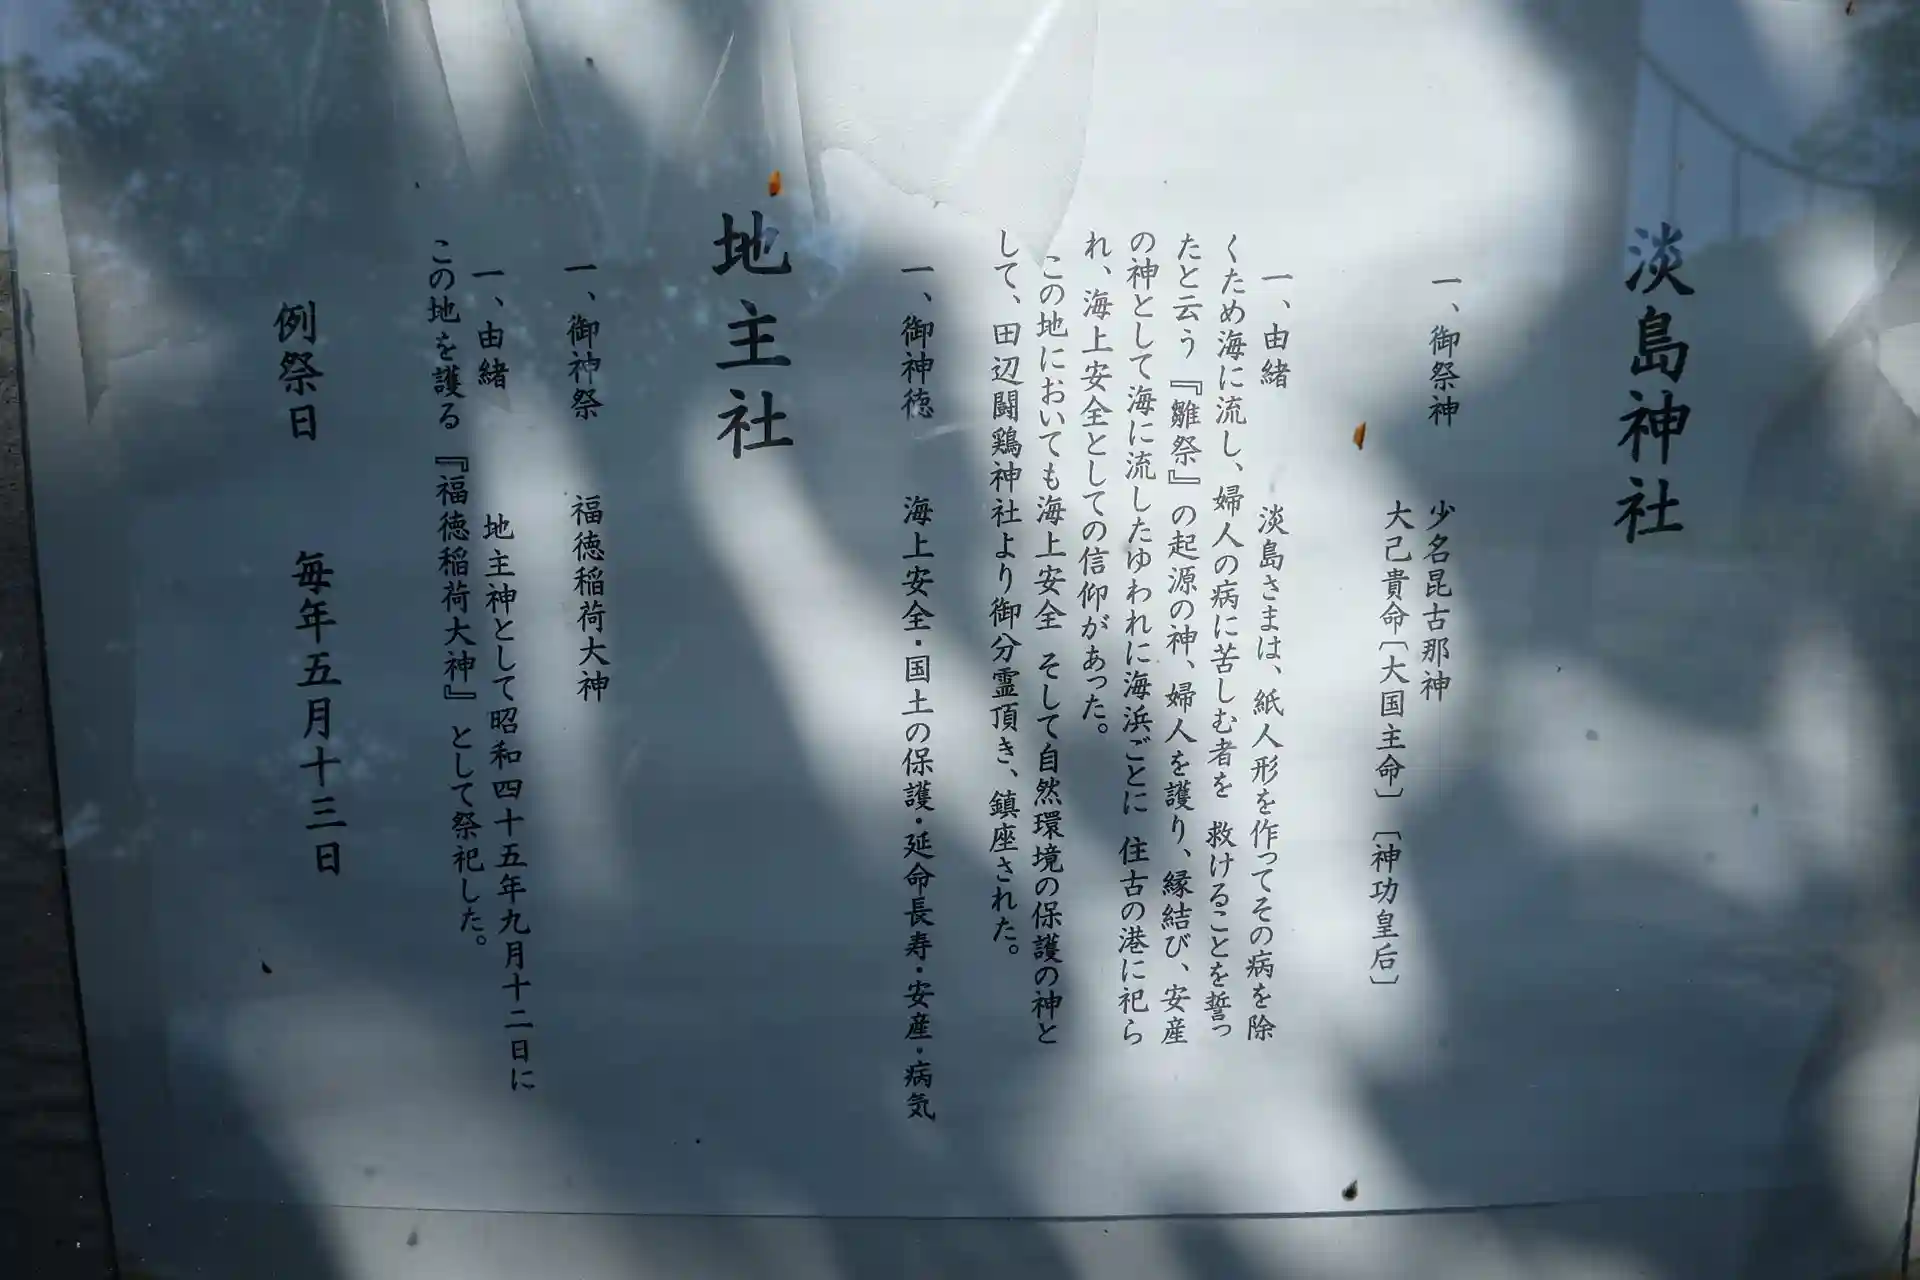 淡島神社
一、御祭神 少名昆古那神
大己貴命〔大国主命〕〔神功皇后〕
一、由緒 淡島さまは、紙人形を作ってその病を除
くため海に流し、婦人の病に苦しむ者を 救けることを誓っ
たと云う『雛祭』の起源の神、婦人を護り、縁結び、安産
の神として海に流したゆわれに海浜ごとに 住古の港に祀ら
れ、海上安全としての信仰があった。
この地においても海上安全 そして自然環境の保護の神と
して、田辺闘鶏神社より御分霊頂き、鎮座された。
一、御神徳 海上安全・国土の保護・延命長寿・安産・病気
地主社
一、御神祭 福徳稲荷大神
一、由緒 地主神として昭和四十五年九月十二日に
この地を護る『福徳稲荷大神』として祭祀した。
例祭日 毎年五月十三日